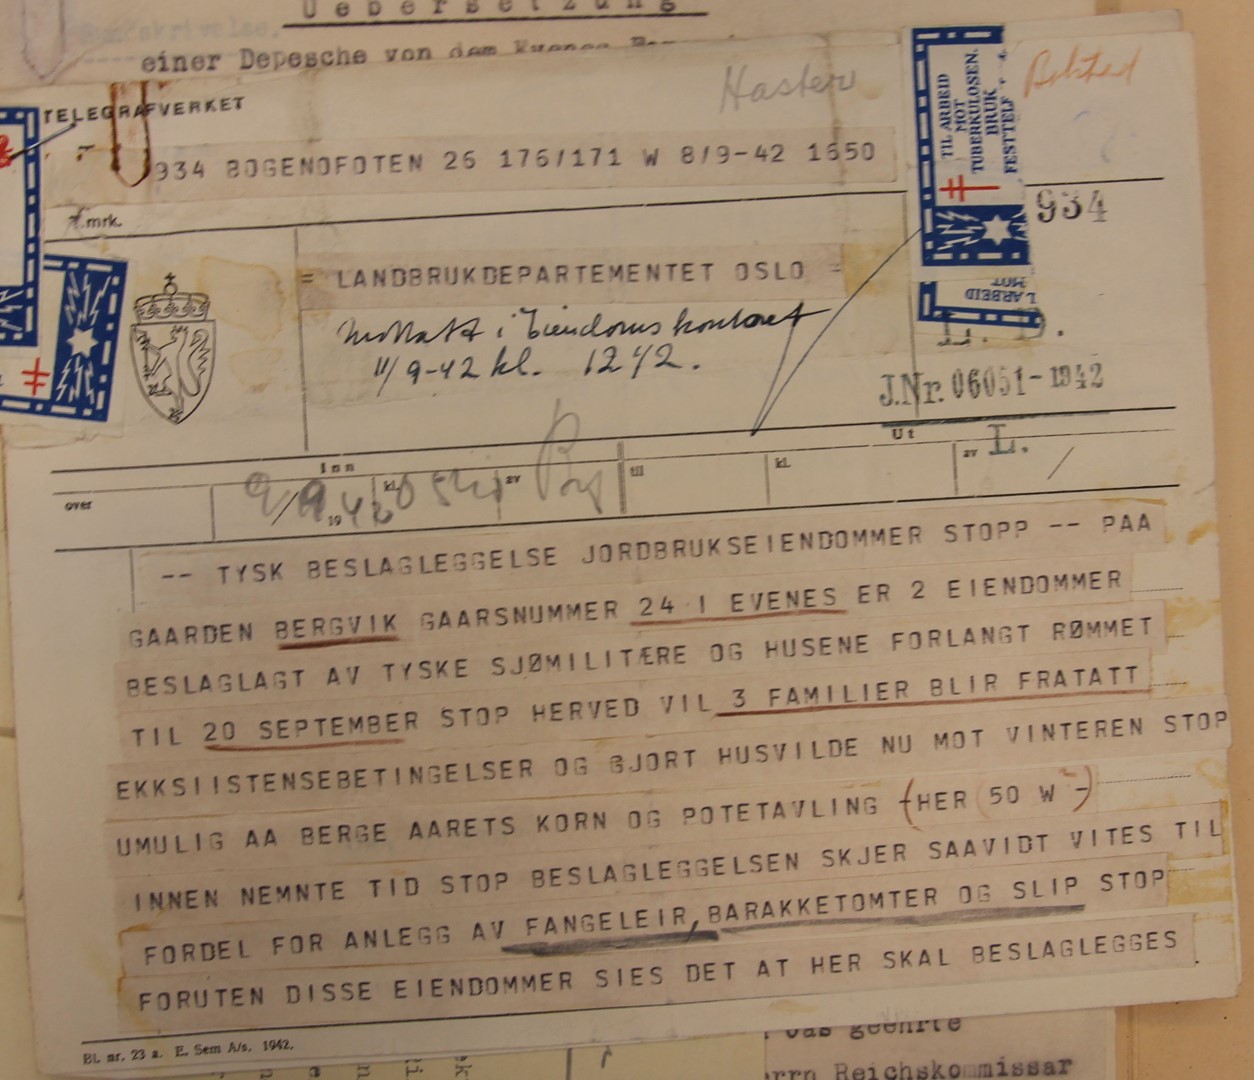 Uebersetzung
einer Depesche von dem Evenes
TELEGRAFVERKET
Haster
934 BOGENOFOTEN 26 176/171 W 8/9-42 1650
TIL ARBEID
MOT
TUBERKULOSEN.
BRUK
FESTTELF
T.mrk.
934
= LANDBRUKDEPARTEMENTET OSLO =
L ARBEID
MOT
Mottatt i Eiendomskontoret
11/9-42 kl. 1242.
L. D.
J.Nr. 06051-1942
L.
Inn
Ut
over
9/9 1942
kl.
av
til
kl.
av
-- TYSK BESLAGLEGGELSE JORDBRUKSEIENDOMMER STOPP -- PAA
GAARDEN BERGVIK GAARSNUMMER 24 I EVENES ER 2 EIENDOMMER
BESLAGLAGT AV TYSKE SJØMILITÆRE OG HUSENE FORLANGT RØMMET
TIL 20 SEPTEMBER STOP HERVED VIL 3 FAMILIER BLIR FRATATT
EKKSIISTENSEBETINGELSER OG GJORT HUSVILDE NU MOT VINTEREN STOP
UMULIG AA BERGE AARETS KORN OG POTETAVLING (-HER 50 W -)
INNEN NEMNTE TID STOP BESLAGLEGGELSEN SKJER SAAVIDT VITES TIL
FORDEL FOR ANLEGG AV FANGELEIR, BARAKKETOMTER OG SLIP STOP
FORUTEN DISSE EIENDOMMER SIES DET AT HER SKAL BESLAGLEGGES
Bl. nr. 23 a. E. Sem A/s. 1942.
, das geehrte
errn Reichskommissar